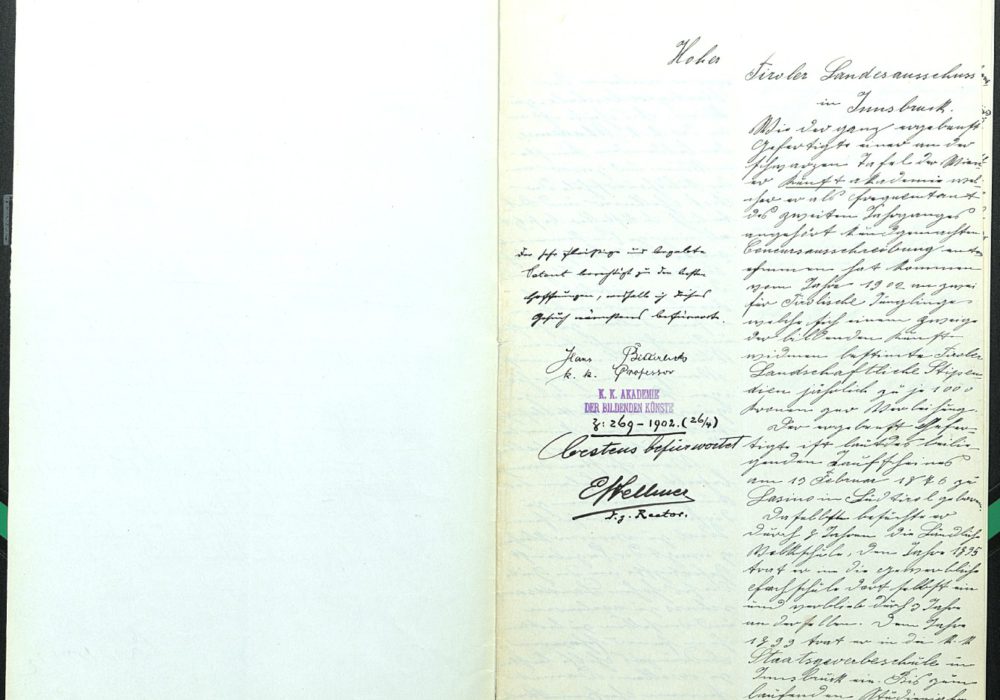 Hoher
Tiroler Landesausschuss
in Innsbruck.
Wie der ganz ergebenst
Gefertigte einer an der
schwarzen Tafel der Wien
er Kunstakademie wel
cher er als Frequentant
des zweiten Jahrganges
angehört kundgemachten
Concursausschreibung ent
ehmmen hat kommen
vom Jahre 1902 an zwei
für Tirolische Jünglinge
welche sich einem Zweige
der bildenden Kunst
widmen bestimte Tiroler
Landschaftliche Stipen
dien jährlich zu je 1000
Kronen zur Verleihung.
Der ergebenst Gefer
tigte ist laut des beilie
genden Taufscheines
am 19 Februar 18 zu
in Südtirol geboren.
Daselbst besuchte er
durch 8 Jahren die Ländliche
Volkschule, dem Jahre 1895
trat er in die gewerbliche
Fachschule dort selbst ein
und verblieb durch 3 Jahre
an derselben. Dem Jahre
1899 trat er in die k.k
Staatsgewerbeschule in
Innsbruck ein. Bis zum
laufenden
Der sehr fleißige und begabte
Talent berechtigt zu den besten
Hoffnungen, weshalb ich dieses
Gesuch wärmstens befürworte.
Hans
k. k. Professor
K. K. AKADEMIE
DER BILDENDEN KÜNSTE
Z: 269 - 1902. (26/4)
bestens befürwortet
EHellmer
d. z. Rector.